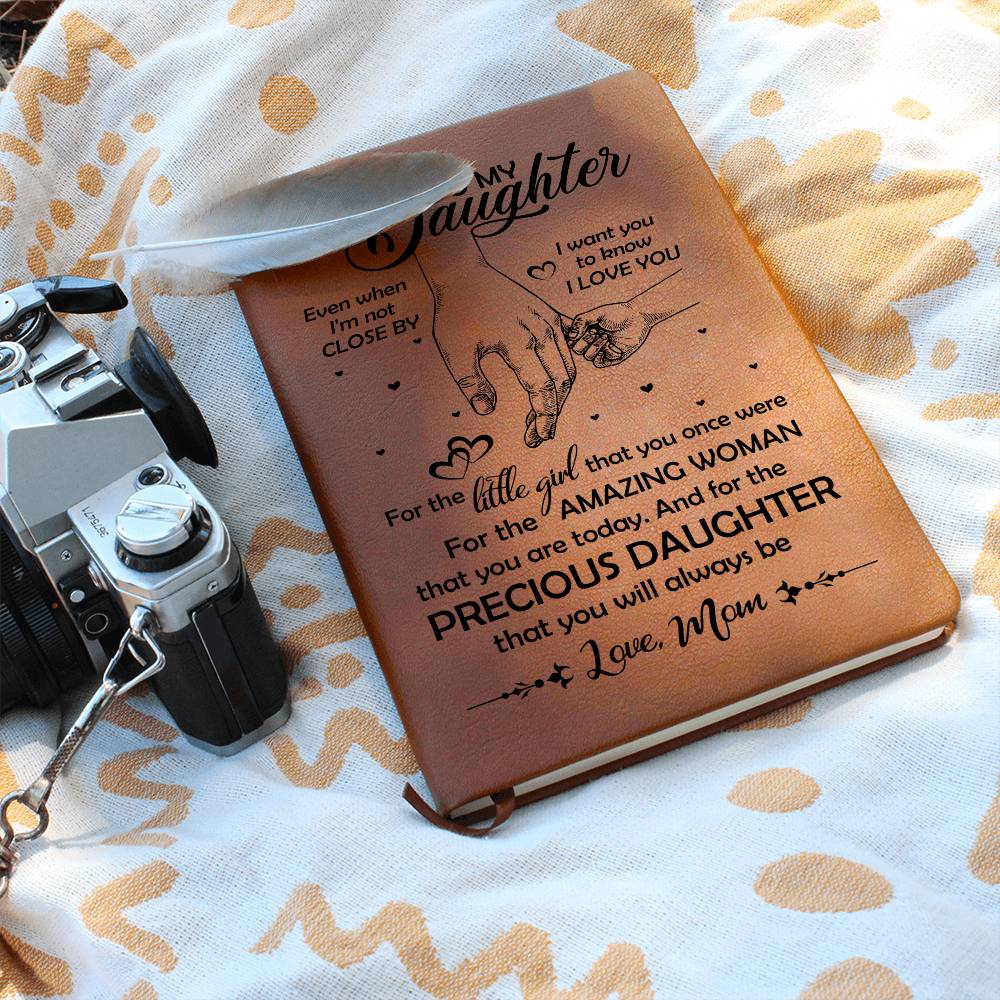 MY
Daughter
Even when
I'm not
CLOSE BY
I want you
to know
I LOVE YOU
For the little girl that you once were
For the AMAZING WOMAN
that you are today. And for the
PRECIOUS DAUGHTER
that you will always be
Love, Mom
3675474